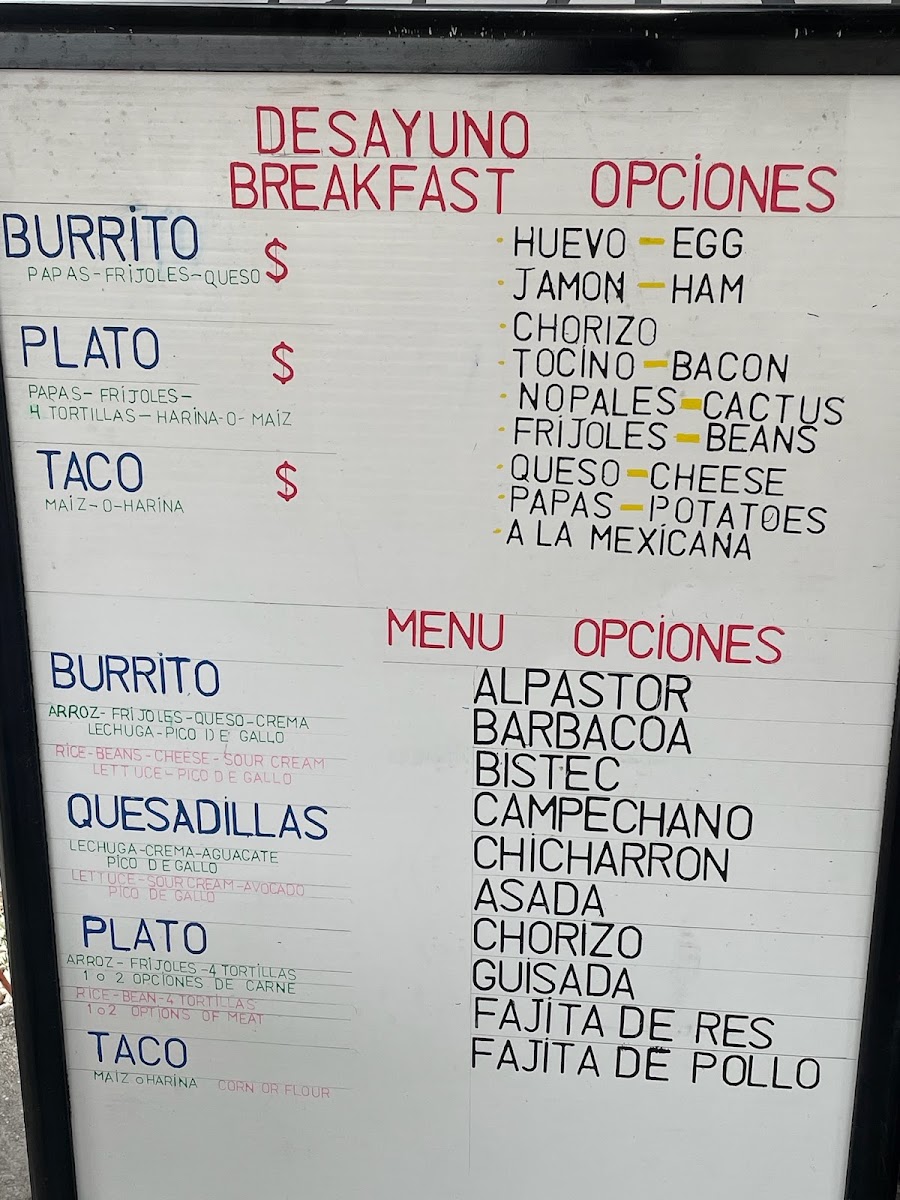 DESAYUNO
BREAKFAST OPCIONES
BURRITO $
PAPAS-FRIJOLES-QUESO
PLATO $
PAPAS-FRIJOLES-
4 TORTILLAS-HARINA-O-MAIZ
TACO $
MAIZ-O-HARINA
· HUEVO - EGG
· JAMON - HAM
· CHORIZO
· TOCINO - BACON
· NOPALES - CACTUS
· FRIJOLES - BEANS
· QUESO - CHEESE
· PAPAS - POTATOES
· A LA MEXICANA
MENU OPCIONES
BURRITO
ARROZ-FRIJOLES-QUESO-CREMA
LECHUGA-PICO DE GALLO
RICE-BEANS-CHEESE-SOUR CREAM
LETTUCE-PICO DE GALLO
QUESADILLAS
LECHUGA-CREMA-AGUACATE
PICO DE GALLO
LETTUCE-SOUR CREAM-AVOCADO
PICO DE GALLO
PLATO
ARROZ-FRIJOLES-4 TORTILLAS
1 o 2 OPCIONES DE CARNE
RICE-BEAN-4 TORTILLAS
1 o 2 OPTIONS OF MEAT
TACO
MAIZ o HARINA CORN OR FLOUR
ALPASTOR
BARBACOA
BISTEC
CAMPECHANO
CHICHARRON
ASADA
CHORIZO
GUISADA
FAJITA DE RES
FAJITA DE POLLO